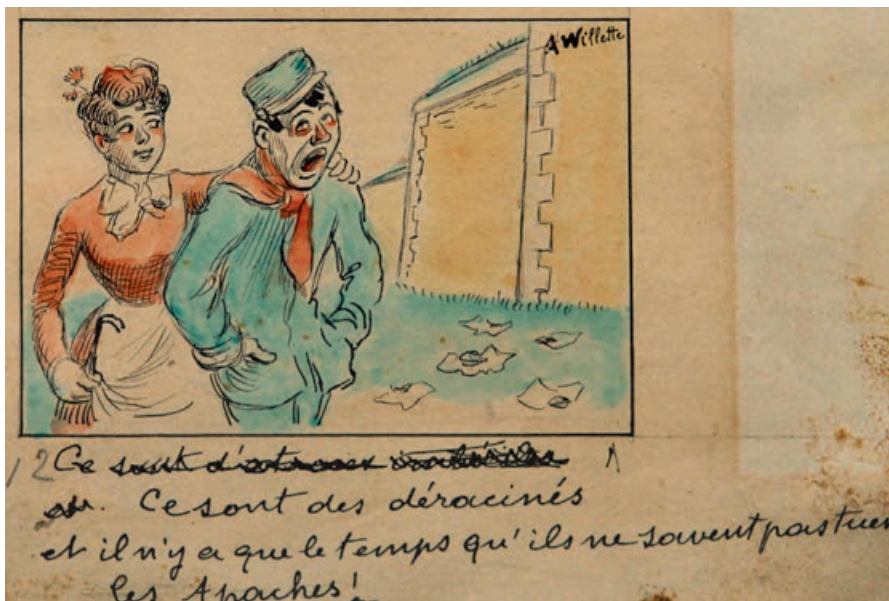 A Willette
12 Ce sont d'atroces
Ce sont des déracinés
et il n'y a que le temps qu'ils ne savent pas tuer
les Apaches!